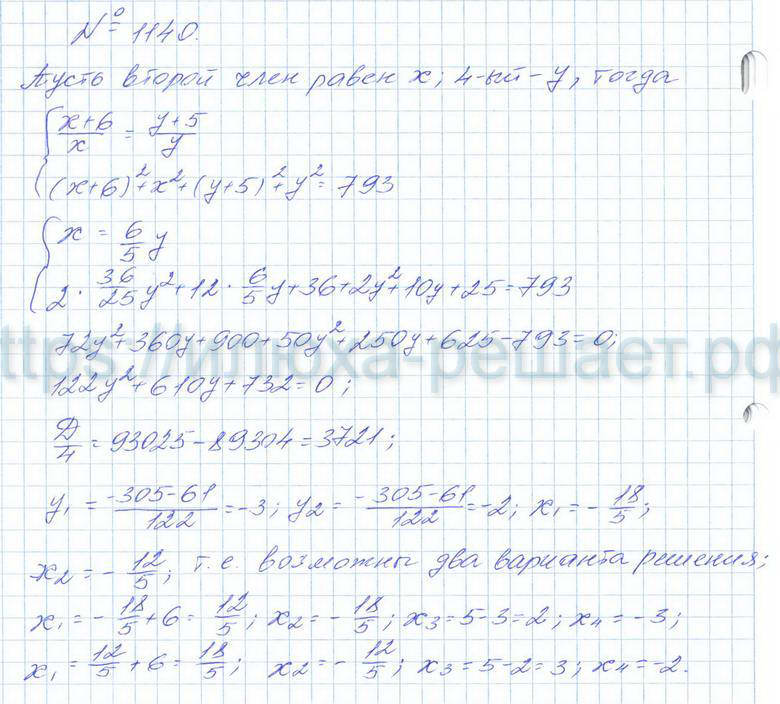 № 1140.
Пусть второй член равен x; 4-ый - y, тогда
{ (x+6)/x = (y+5)/y
{ (x+6)²+x²+(y+5)²+y²=793
{ x = 6/5 y
{ 2·36/25 y²+12·6/5 y+36+2y²+10y+25=793
72y²+360y+900+50y²+250y+625-793=0;
https://илюха-решает.рф
122y²+610y+732=0;
Д/4=93025-89304=3721;
y₁ = (-305-61)/122 =-3; y₂ = (-305-61)/122 =-2; x₁ = -18/5;
x₂ = -12/5; т.е. возможны два варианта решения;
x₁ = -18/5+6 = 12/5; x₂ = -18/5; x₃=5-3=2; x₄=-3;
x₁ = 12/5+6 = 18/5; x₂ = -12/5; x₃=5-2=3; x₄=-2.